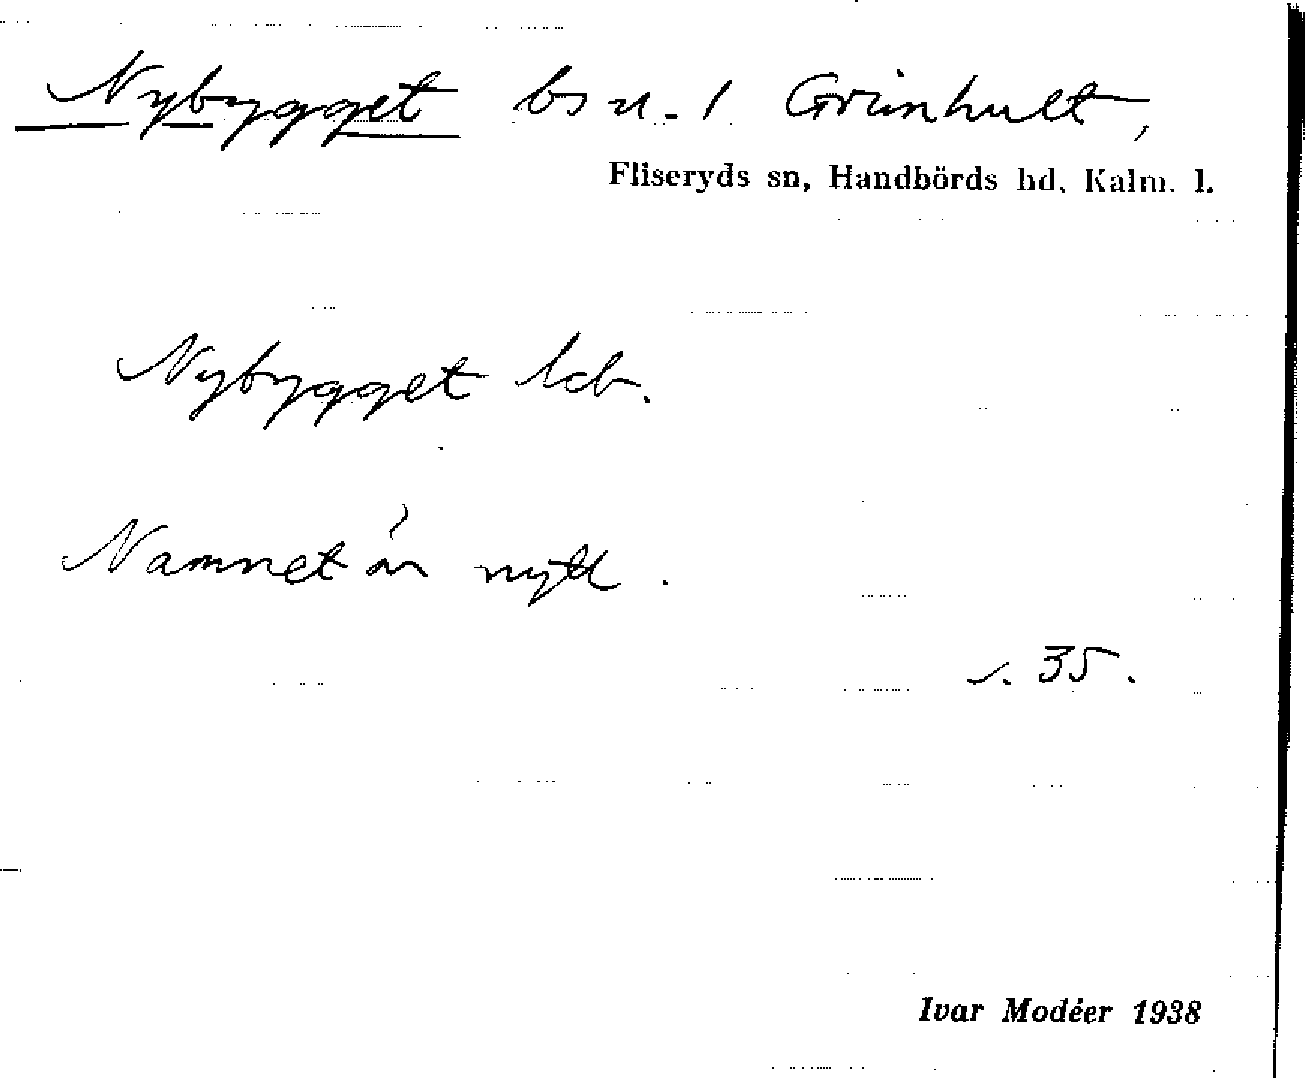 Nybygget bs u. 1 Grönhult,
Fliseryds sn, Handbörds hd, Kalm. l.
Nybygget
Namnet är nytt.
s. 35.
Ivar Modéer 1938